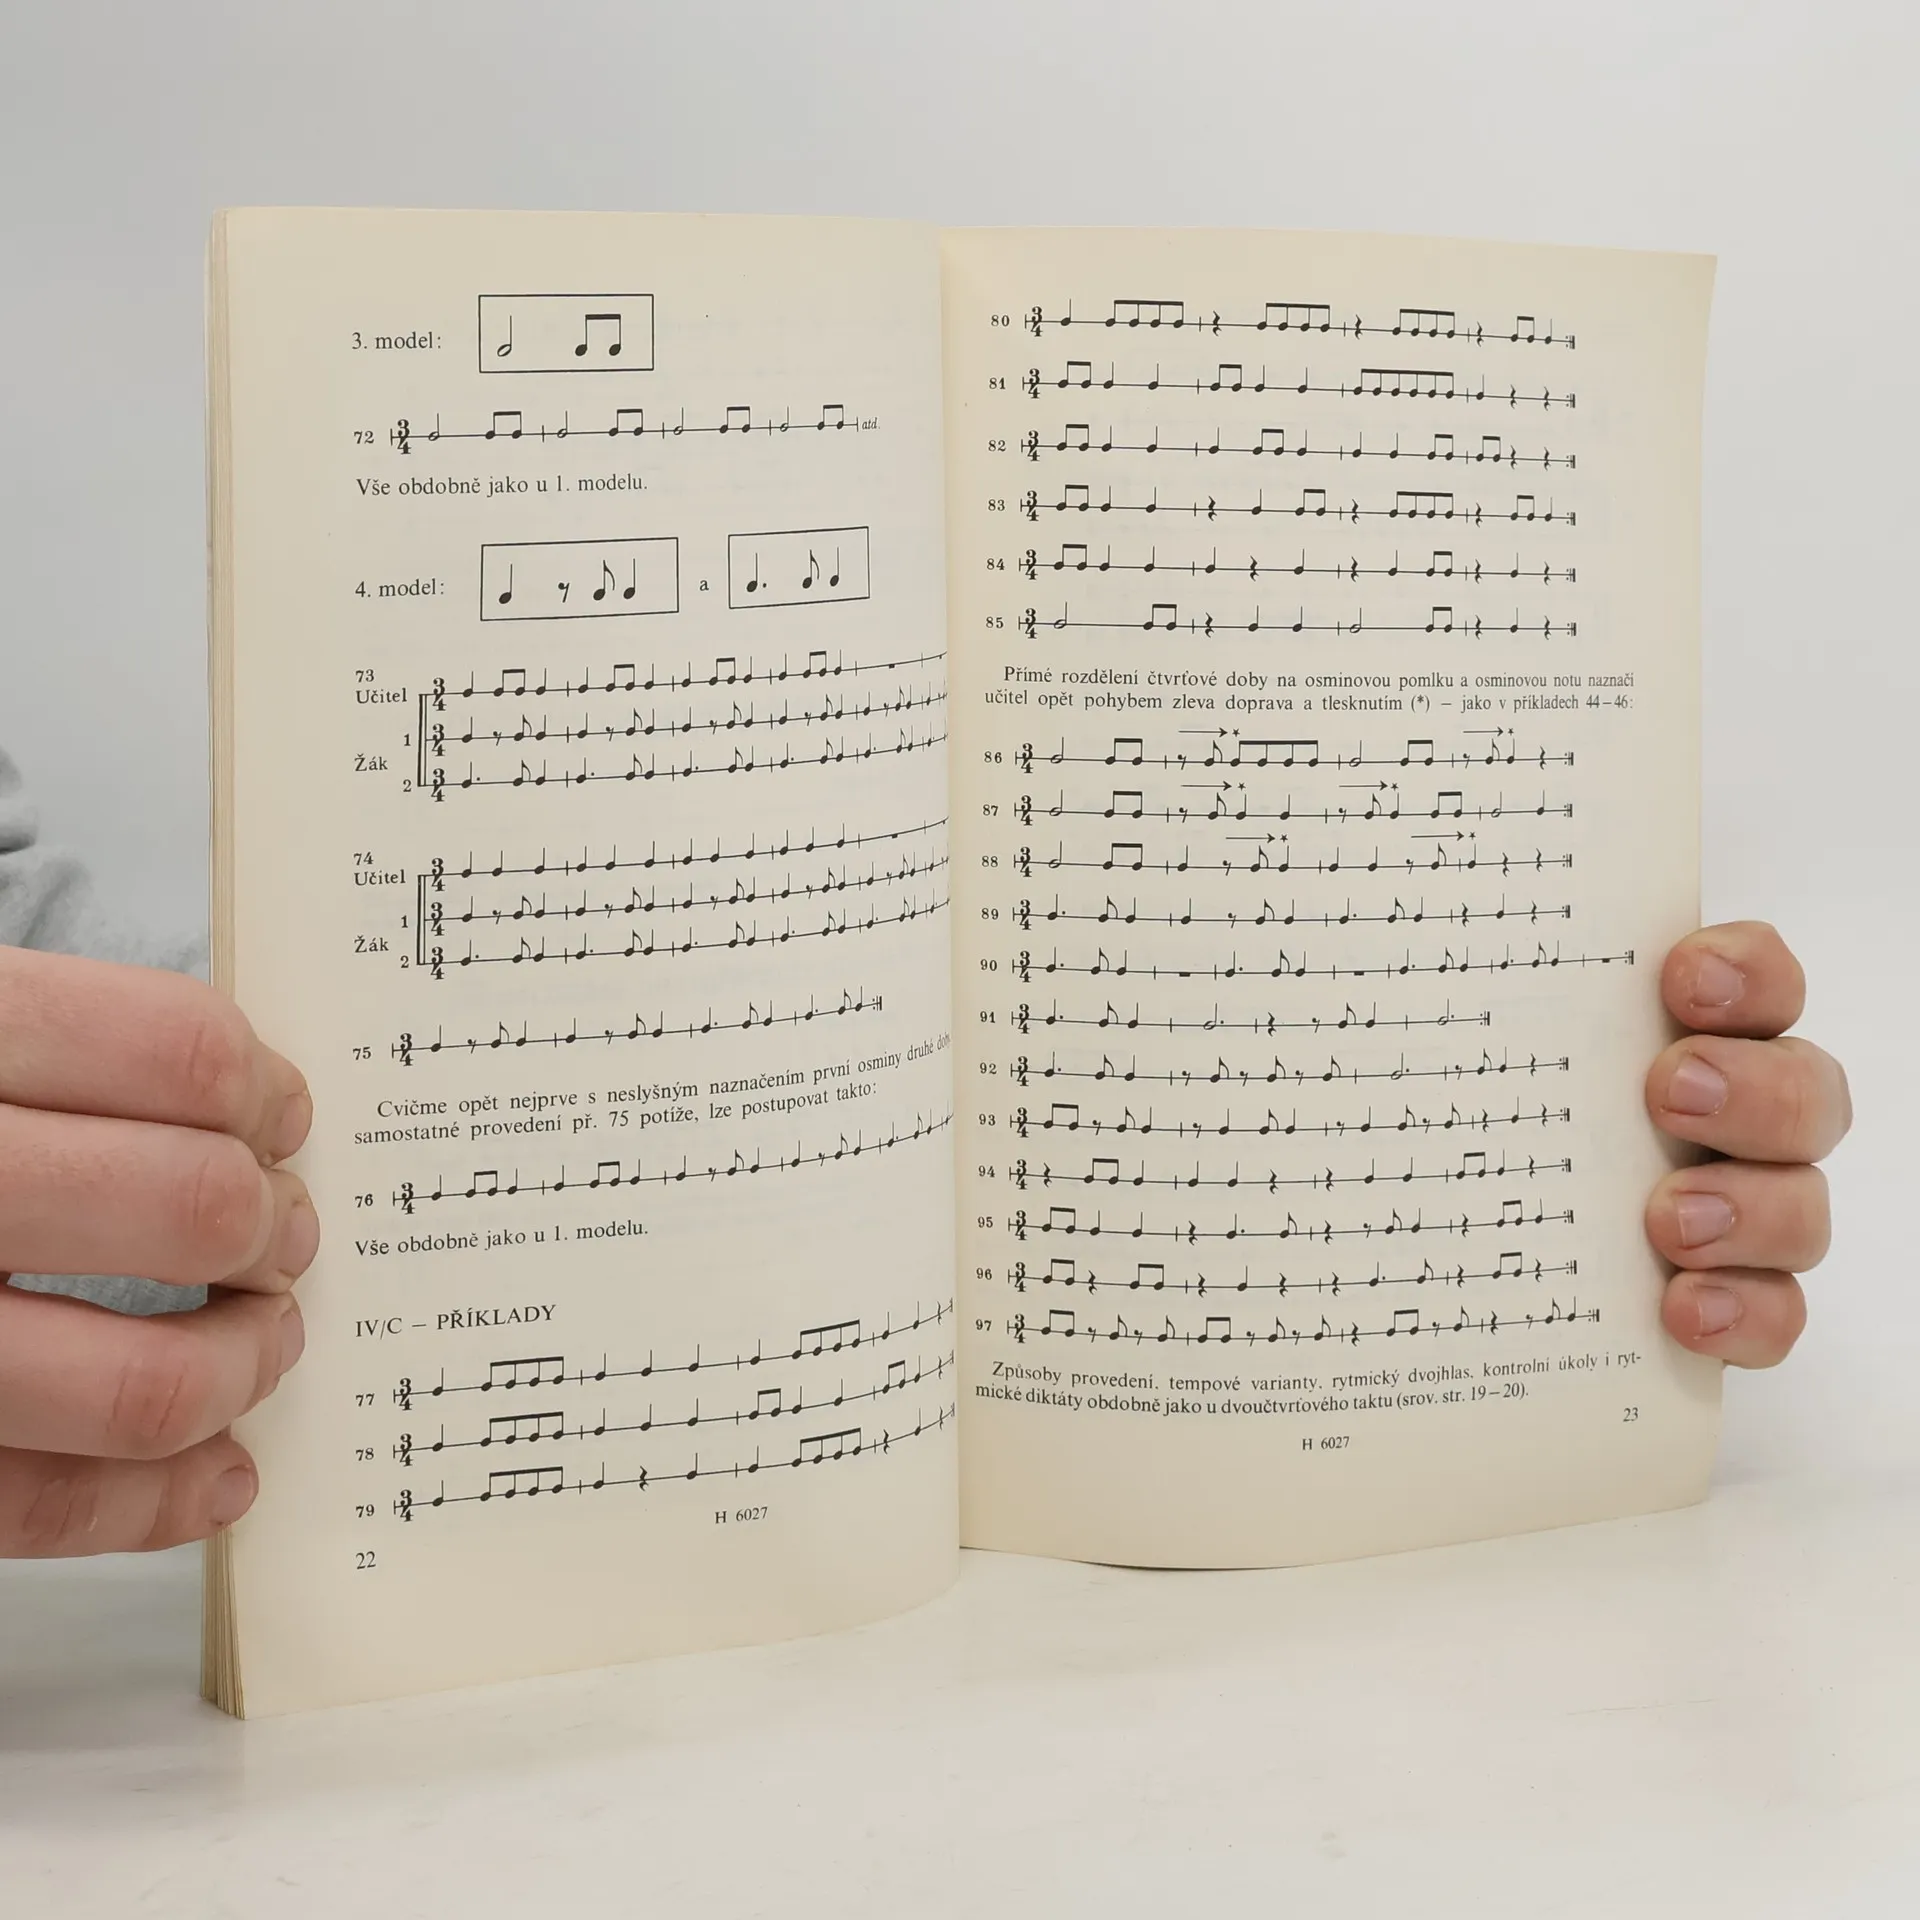 3. model:
72 3/4 atd.
Vše obdobně jako u 1. modelu.
4. model: a
73
Učitel 3/4
1 3/4
Žák
2 3/4
74
Učitel 3/4
1 3/4
Žák
2 3/4
75 3/4
Cvičme opět nejprve s neslyšným naznačením první osminy druhé
samostatné provedení př. 75 potíže, lze postupovat takto:
76 3/4
Vše obdobně jako u 1. modelu.
IV/C – PŘÍKLADY
77 3/4
78 3/4
79 3/4
H 6027
22
80 3/4
81 3/4
82 3/4
83 3/4
84 3/4
85 3/4
Přímé rozdělení čtvrťové doby na osminovou pomlku a osminovou notu naznačí
učitel opět pohybem zleva doprava a tlesknutím (*) – jako v příkladech 44–46:
86 3/4
87 3/4
88 3/4
89 3/4
90 3/4
91 3/4
92 3/4
93 3/4
94 3/4
95 3/4
96 3/4
97 3/4
Způsoby provedení, tempové varianty, rytmický dvojhlas, kontrolní úkoly i ryt-
mické diktáty obdobně jako u dvoučtvrťového taktu (srov. str. 19–20).
23
H 6027